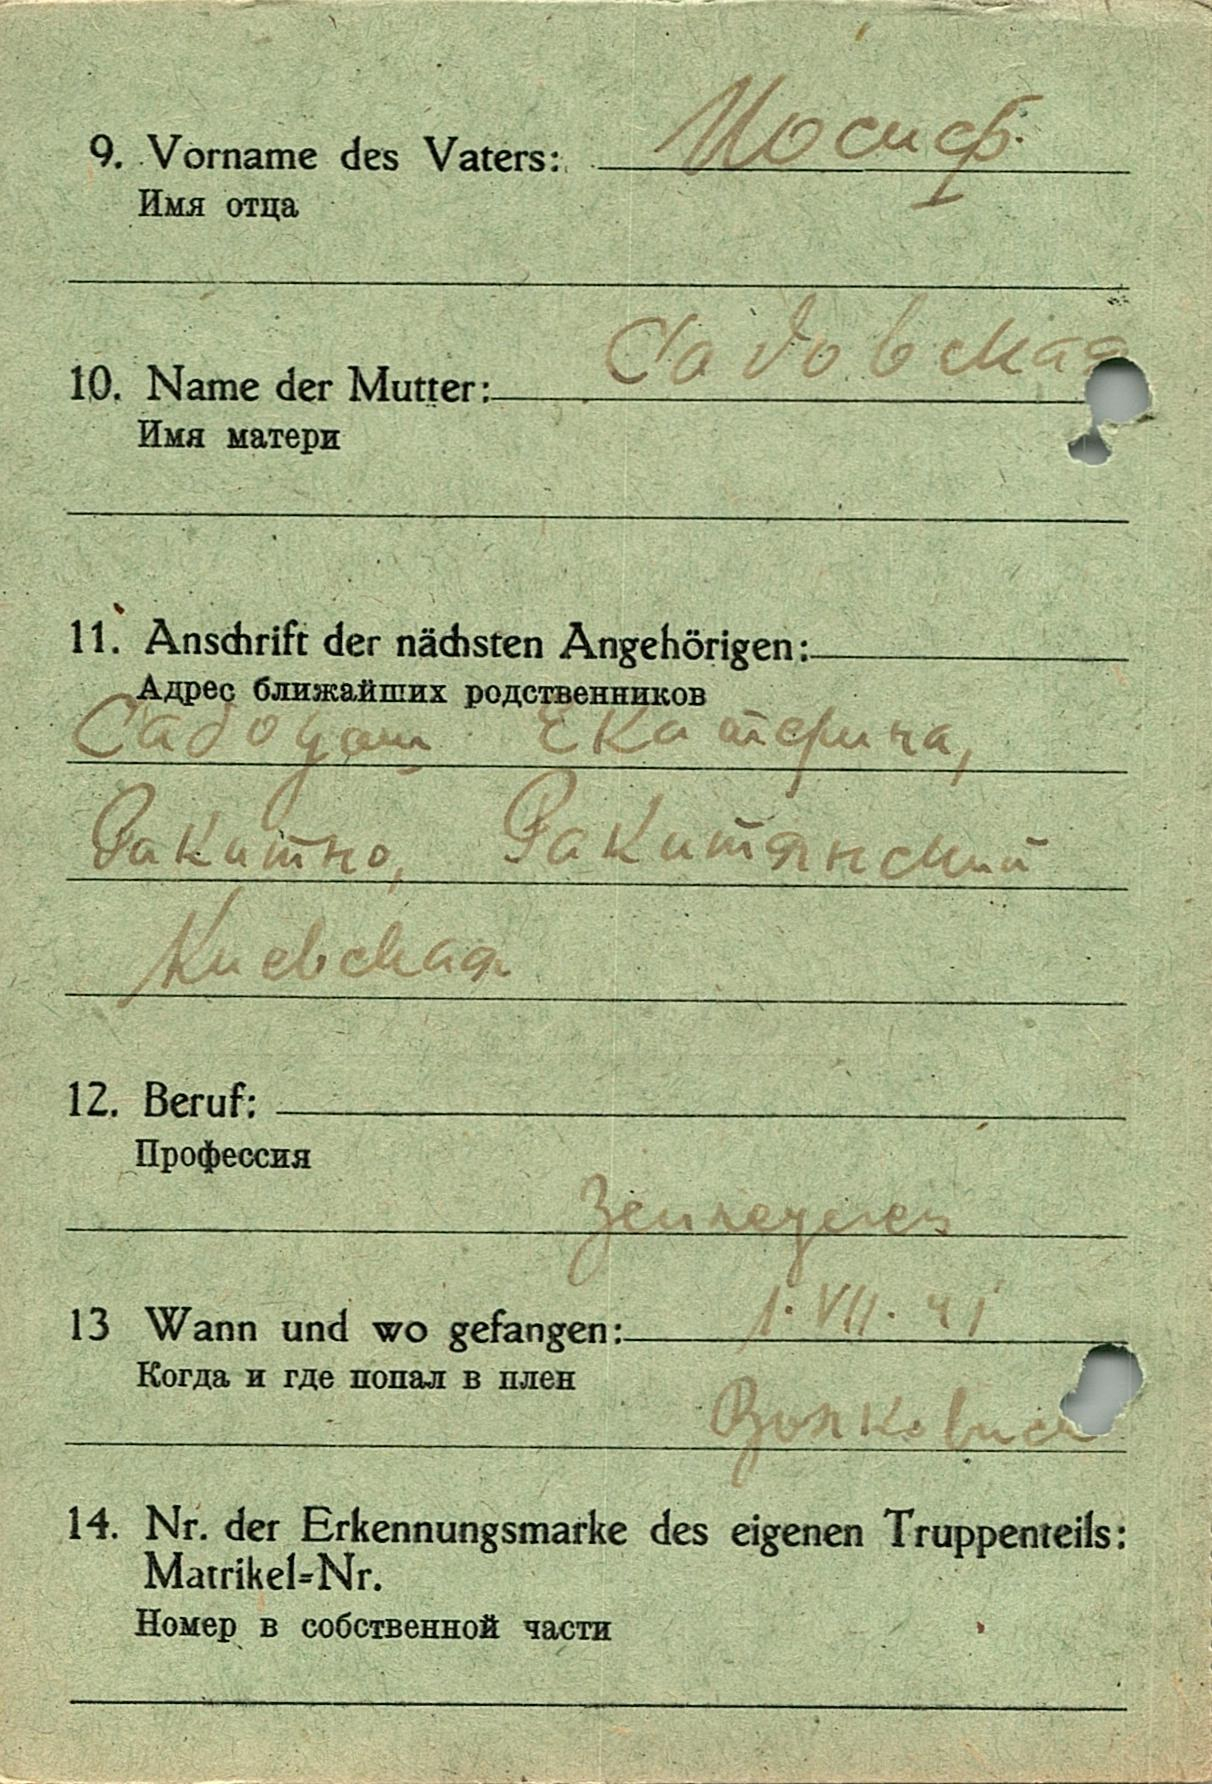 9. Vorname des Vaters: Иосиф.
Имя отца
10. Name der Mutter: Садовская
Имя матери
11. Anschrift der nächsten Angehörigen:
Адрес ближайших родственников
Екатерина,
Ракитно, Ракитянский
Киевская
12. Beruf:
Профессия
13 Wann und wo gefangen: 1. VII. 41
Когда и где попал в плен
14. Nr. der Erkennungsmarke des eigenen Truppenteils:
Matrikel-Nr.
Номер в собственной части